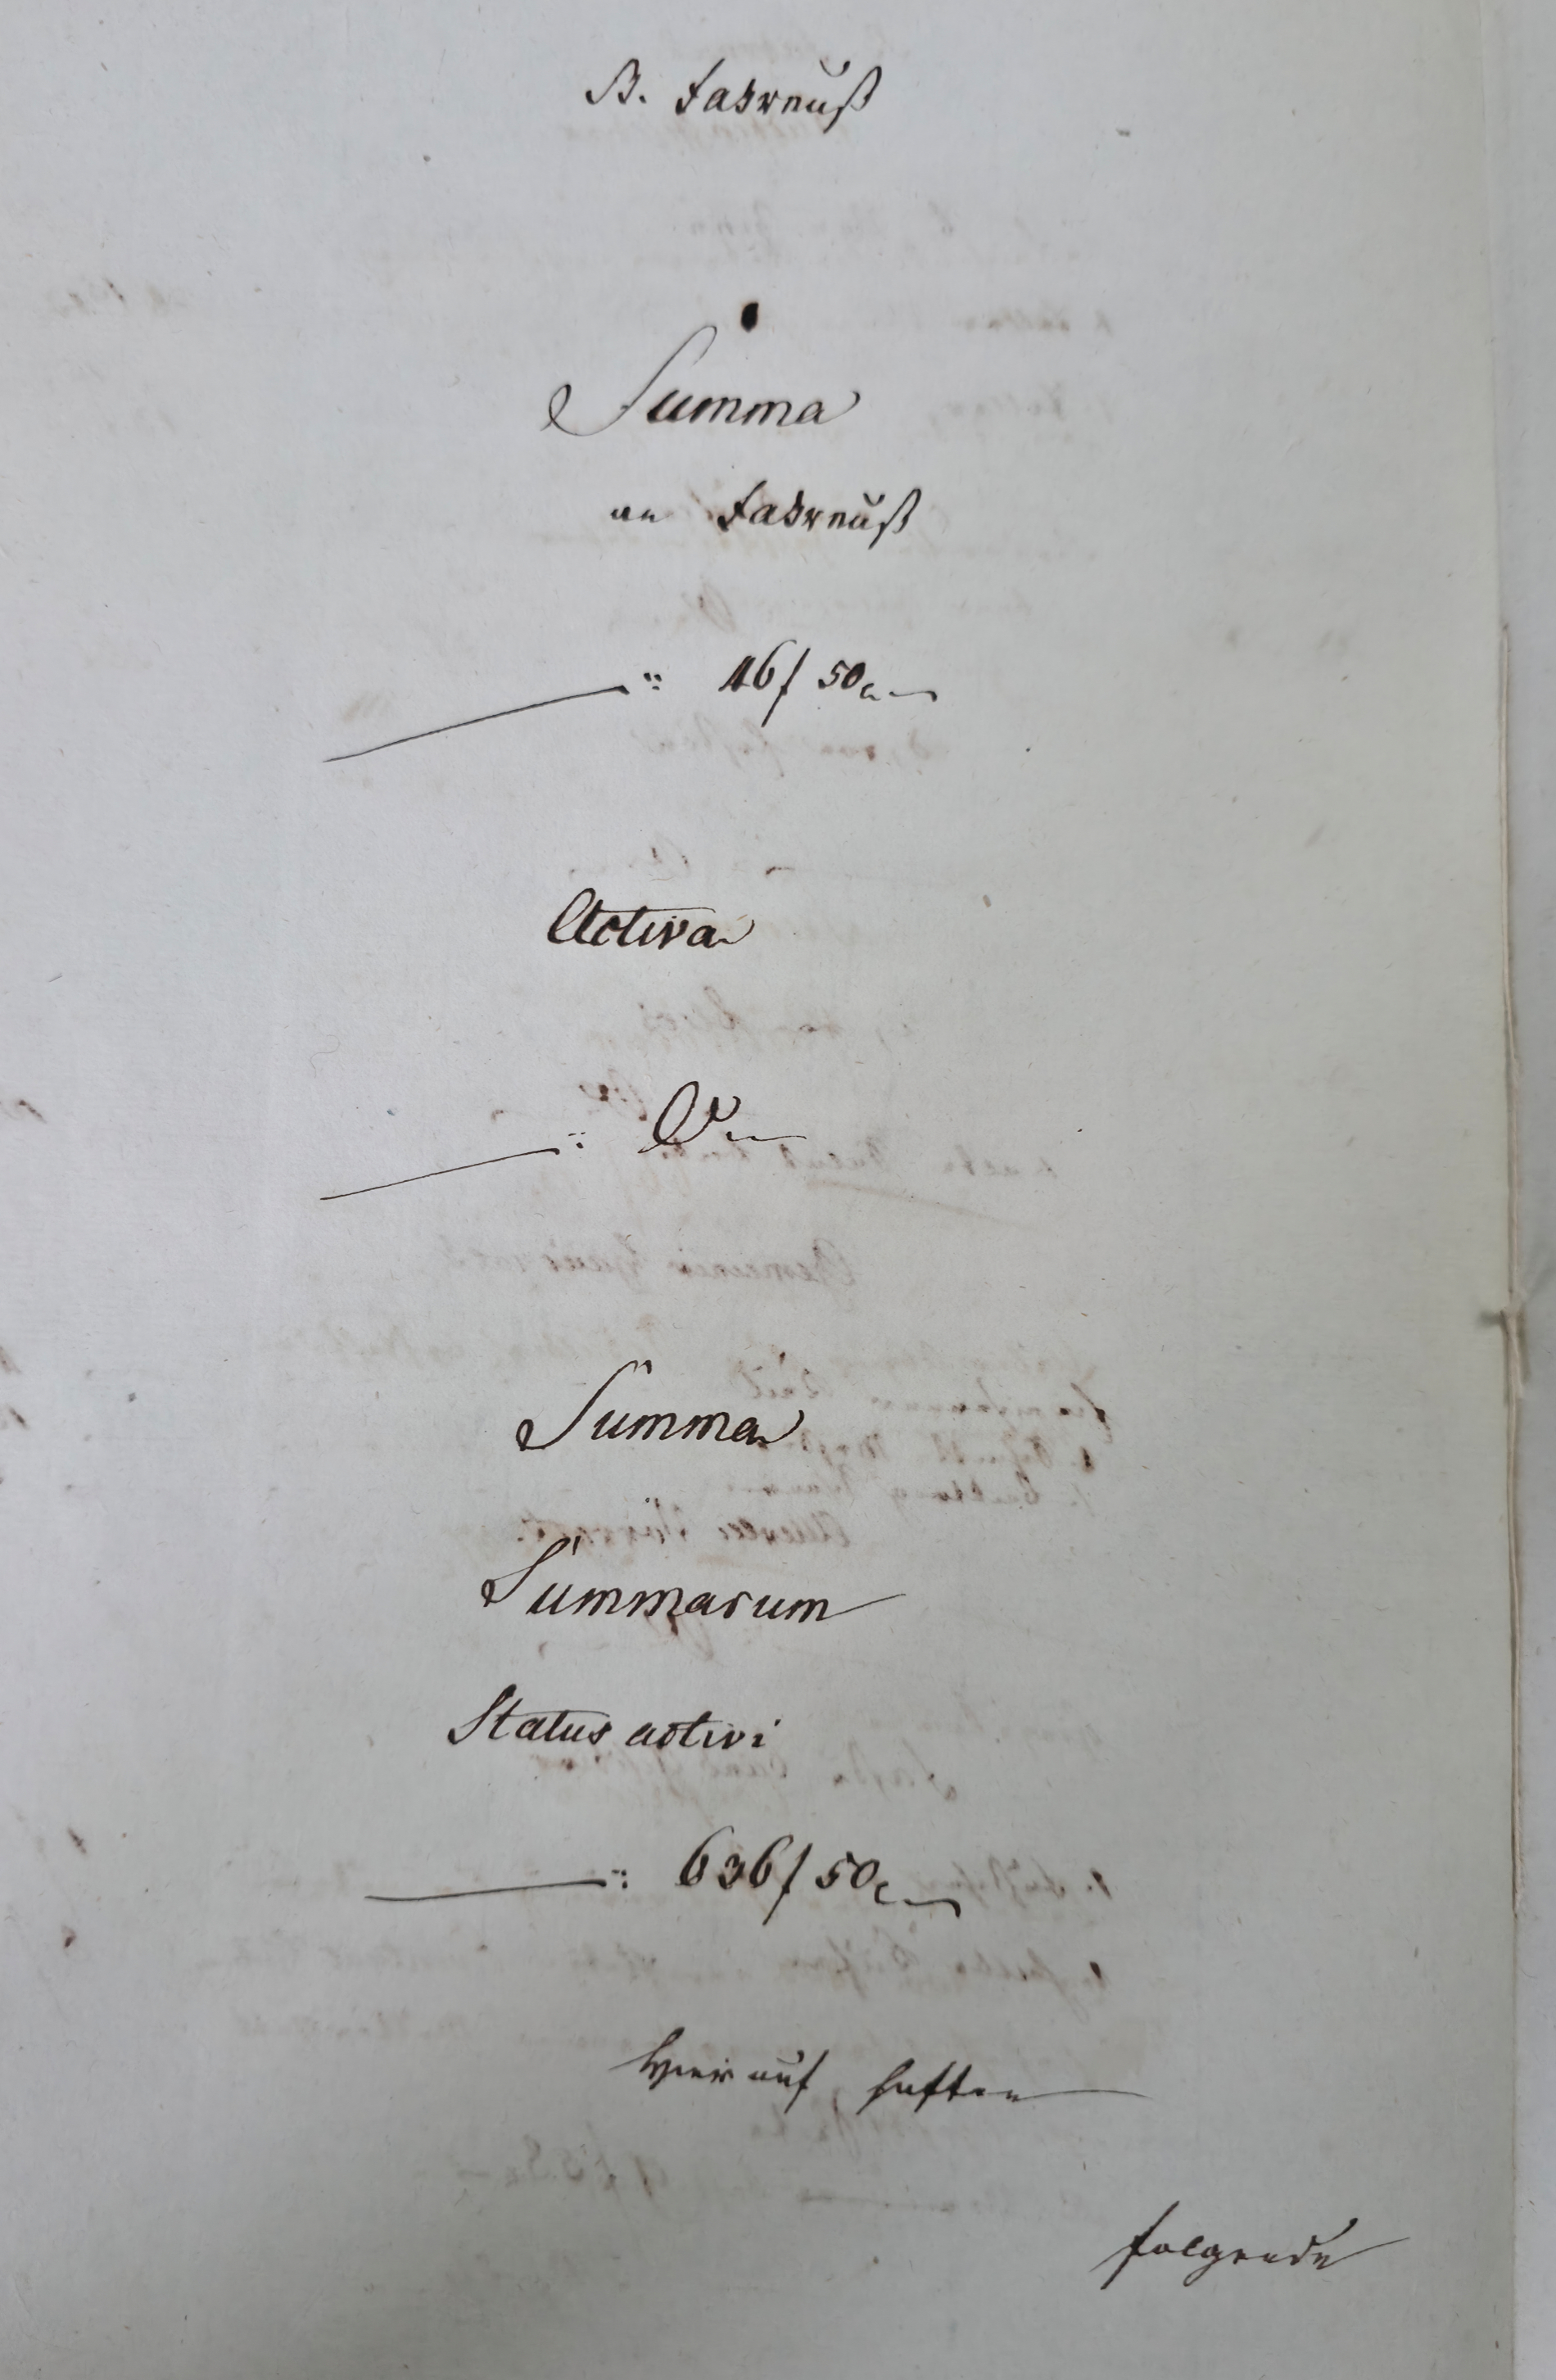 B. Fahrnuß
Summa
an Fahrnuß
46 f 50 c
Activa
Summa
Summarum
Status activi
636 f 50 c
Hierauf haften
folgende